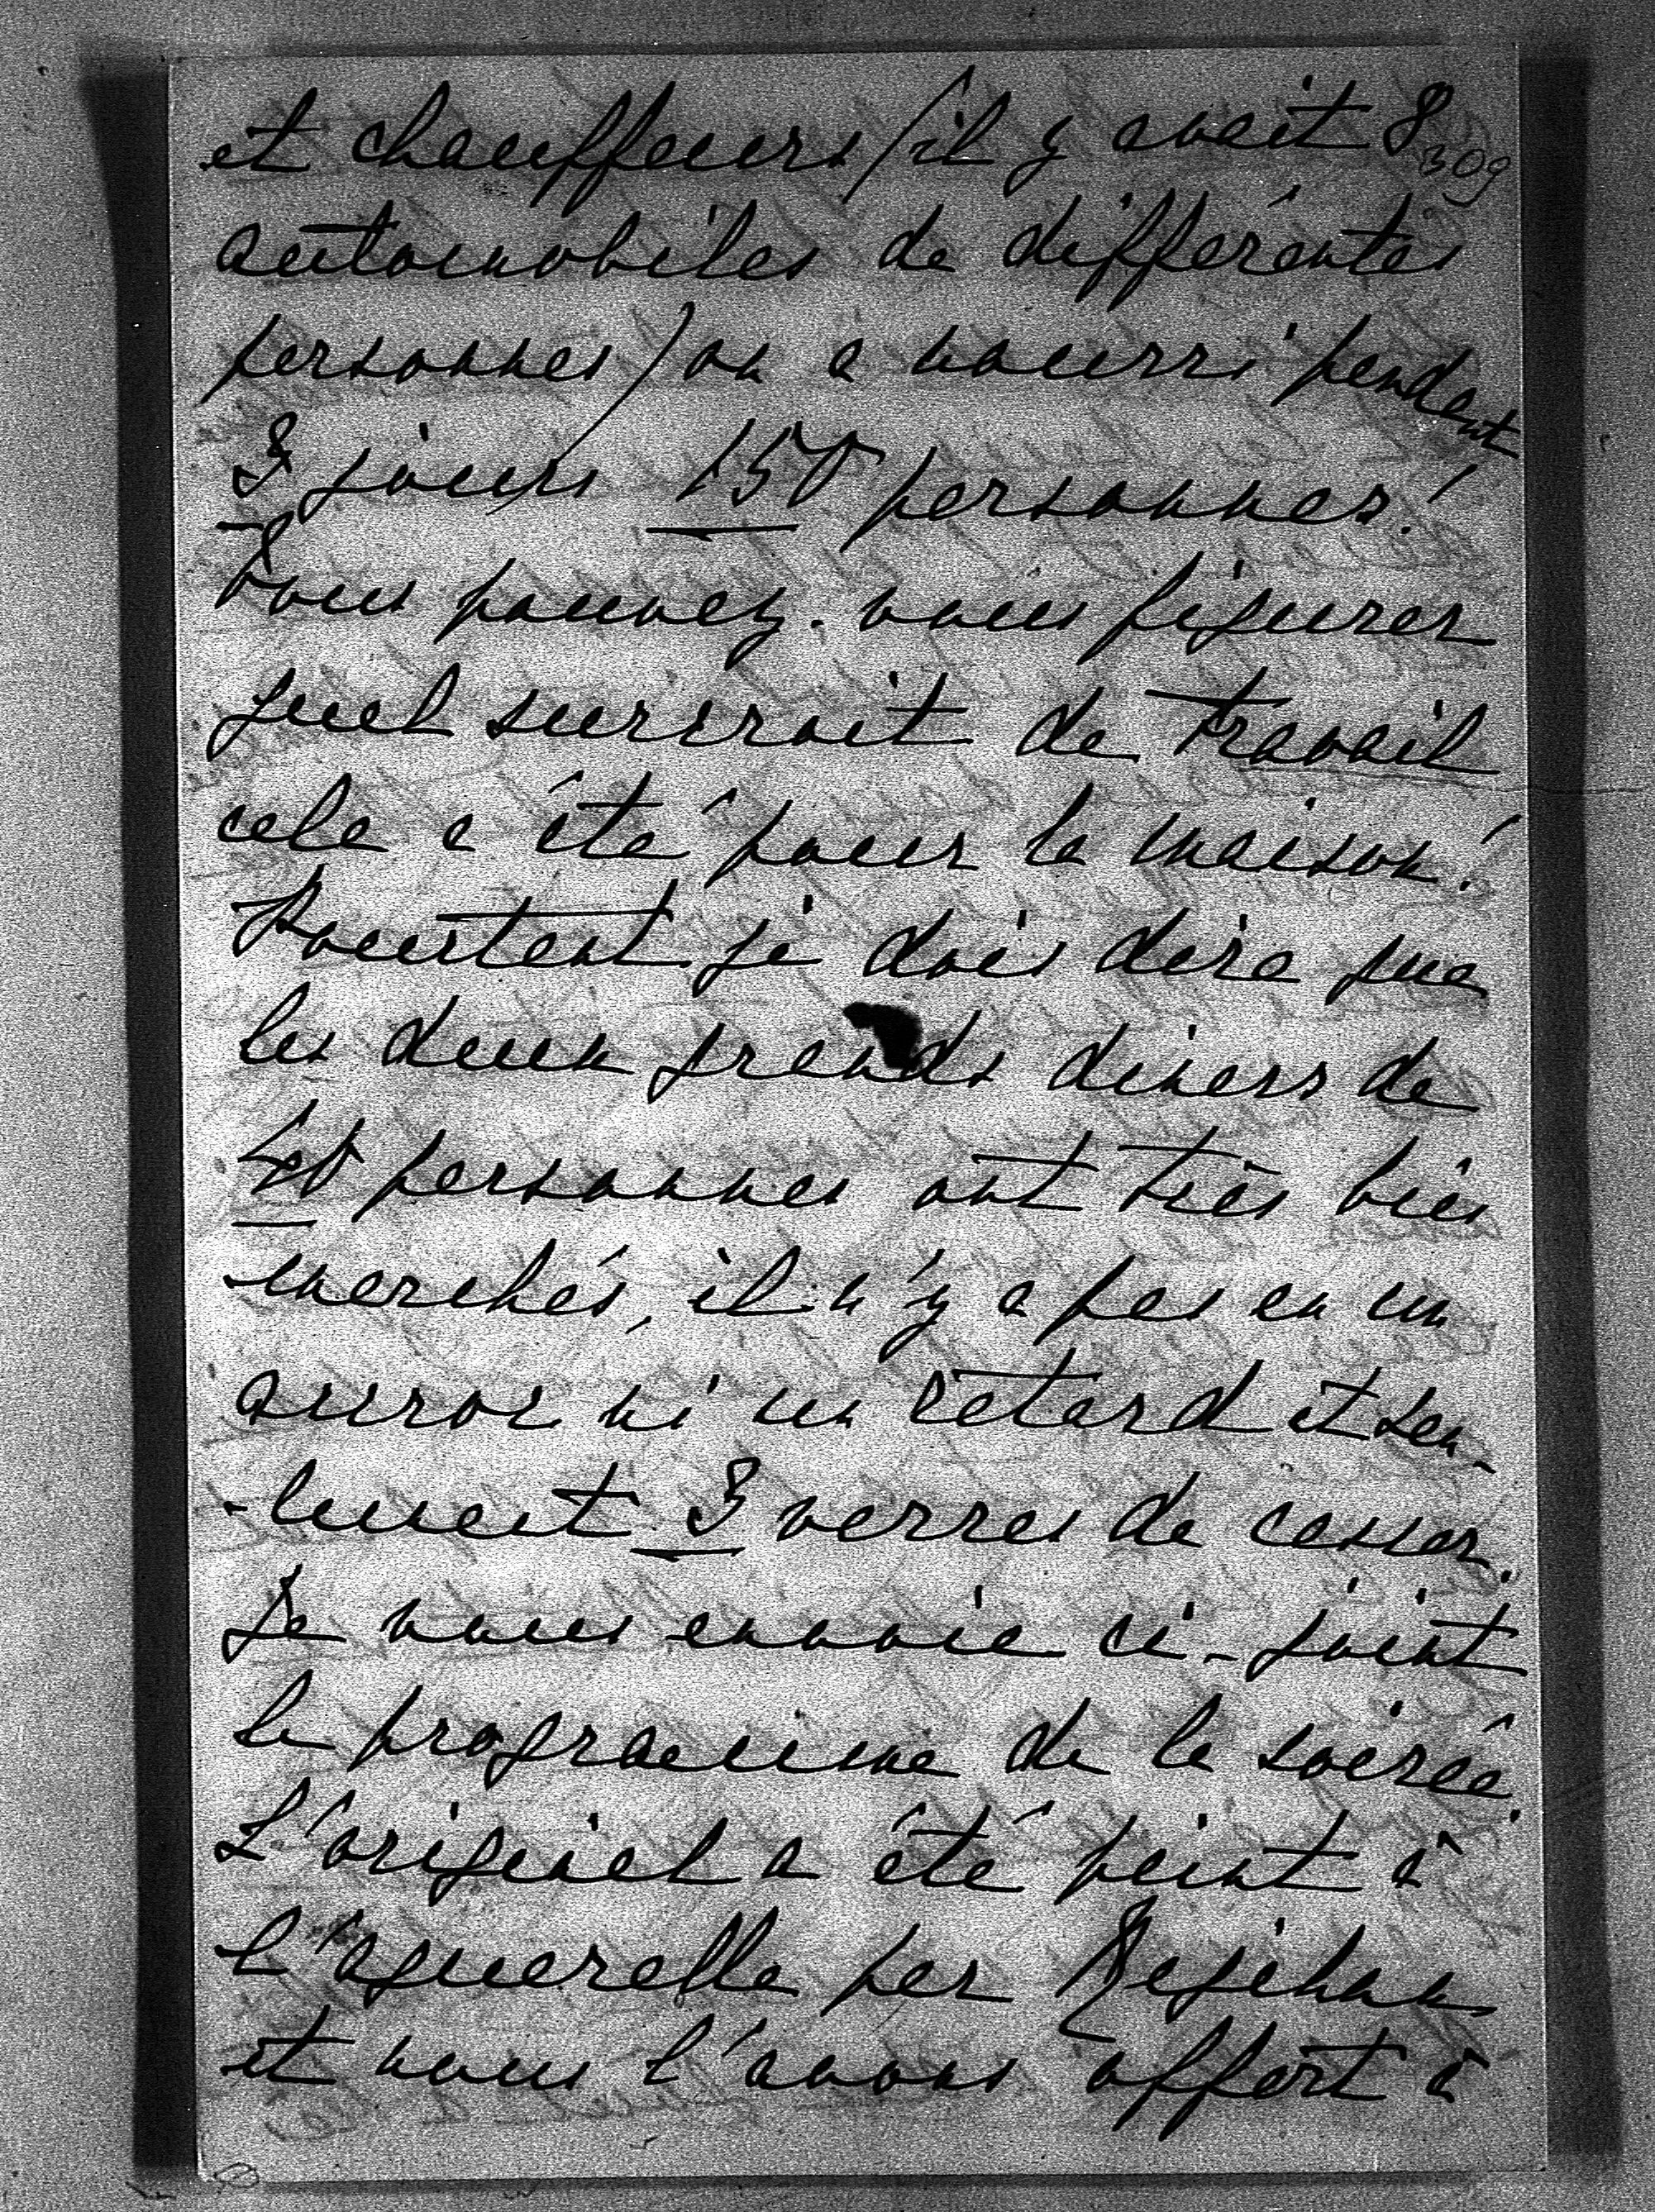 et chauffeurs (il y avait 8
309
automobiles de différentes
personnes) on a nourri pendant
3 jours 150 personnes!
Vous pouvez-vous figurer
quel surcroit de travail
cela a été pour la maison!
Pourtant je dois dire que
les deux grands diners de
40 personnes ont très bien
marchés, il n'y a pas eu un
accroc ni un retard et seu-
-lement 3 verres de cassés.
Je vous envoie ci-joint
le programme de la soirée.
L'original a été peint à
l'aquarelle par
et nous l'avons offert à